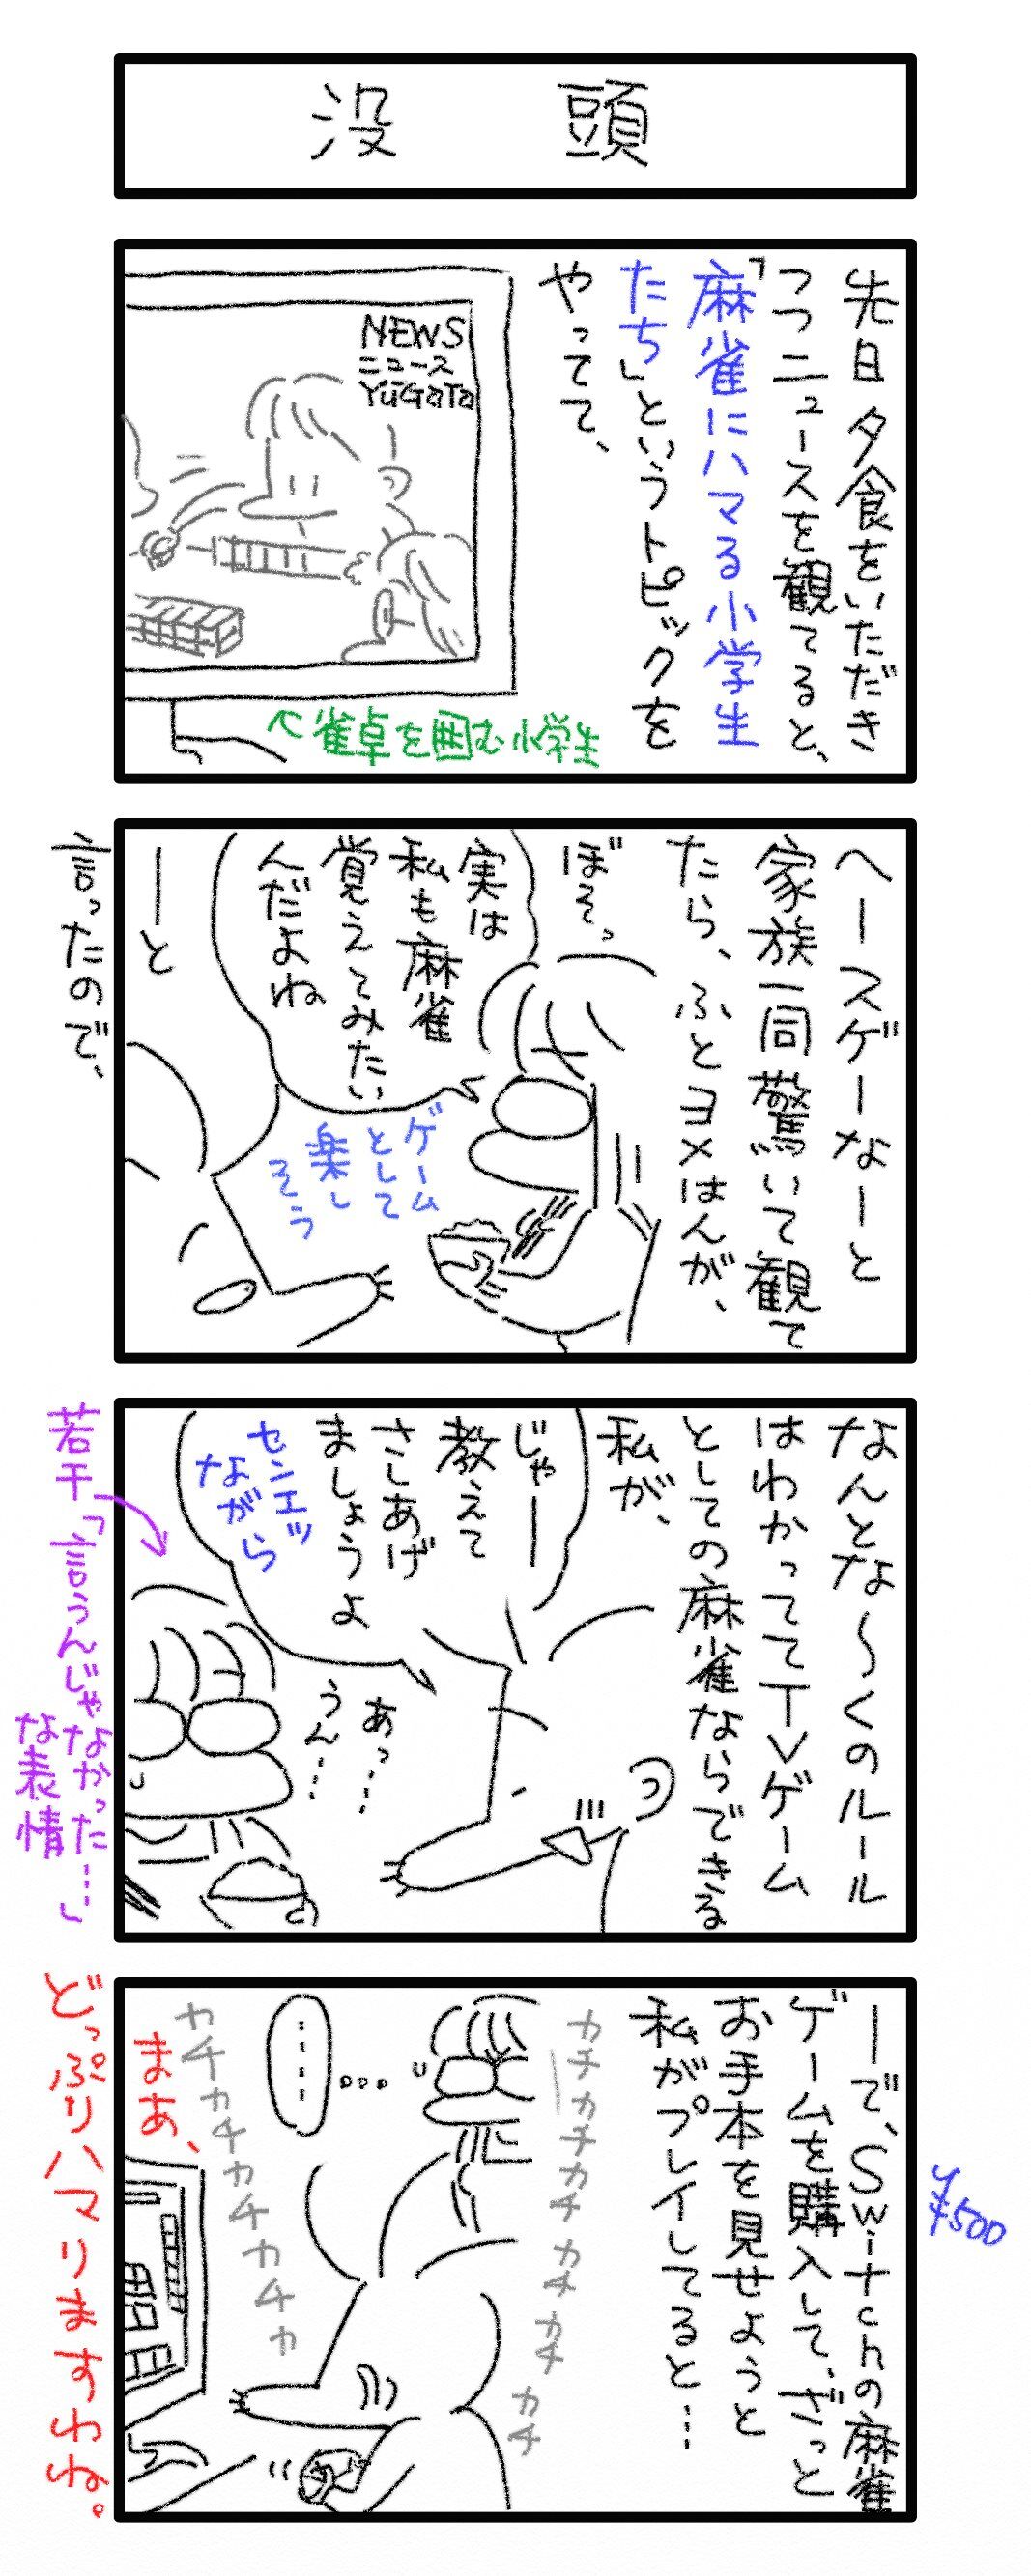 没頭
先日夕食をいただき
つつニュースを観てると、
「麻雀にハマる小学生
たち」というトピックを
やってて、
NEWS
ニュース
YUGATA
雀卓を囲む小学生
へースゲーなーと
家族一同驚いて観て
たら、ふとヨメはんが、
ぼそっ
実は
私も麻雀
覚えてみたい
んだよね
ゲーム
として
楽し
そう
ーと
言ったので、
なんとな〜くのルール
はわかっててTVゲーム
としての麻雀ならできる
私が、
じゃー
教えて
さしあげ
ましょうよ
センエツ
ながら
あっ…
うん…
若干「言うんじゃなかった…」
な表情
ーで、Switchの麻雀
ゲームを購入して、ざっと
お手本を見せようと
私がプレイしてると…
¥500
カチカチカチカチカチカチ
……
カチカチカチカチカ
まあ、
どっぷりハマりますわね。